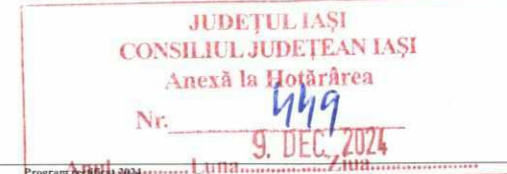 JUDEȚUL IAȘI
CONSILIUL JUDEȚEAN IAȘI
Anexă la Hotărârea
Nr. 449
9. DEC. 2024
Anul.........Luna...............Ziua..................
Program rectificat 2024